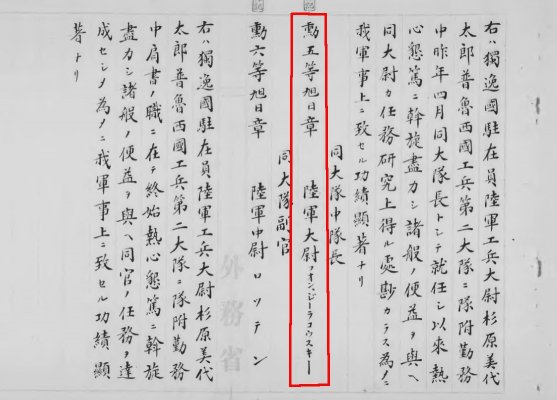 右ハ獨逸國駐在員陸軍工兵大尉杉原美代
太郎普魯西國工兵第二大隊ニ隊附勤務
中昨年四月同大隊長トシテ就任シ以來熱
心懇篤ニ斡旋盡力シ諸般ノ便益ヲ與ヘ
同大尉カ任務研究上得ル處尠カラス為メニ
我軍事上ニ致セル功績顯著ナリ
同大隊中隊長
勳五等旭日章 陸軍大尉フオン、ジーラコウスキー
同大隊副官
勳六等旭日章 陸軍中尉ロツテン
右ハ獨逸國駐在員陸軍工兵大尉杉原美代
太郎普魯西國工兵第二大隊ニ隊附勤務
中肩書ノ職ニ在テ終始熱心懇篤ニ斡旋
盡力シ諸般ノ便益ヲ與ヘ同官ノ任務ヲ達
成セシメ為メニ我軍事上ニ致セル功績顯
著ナリ
外務省